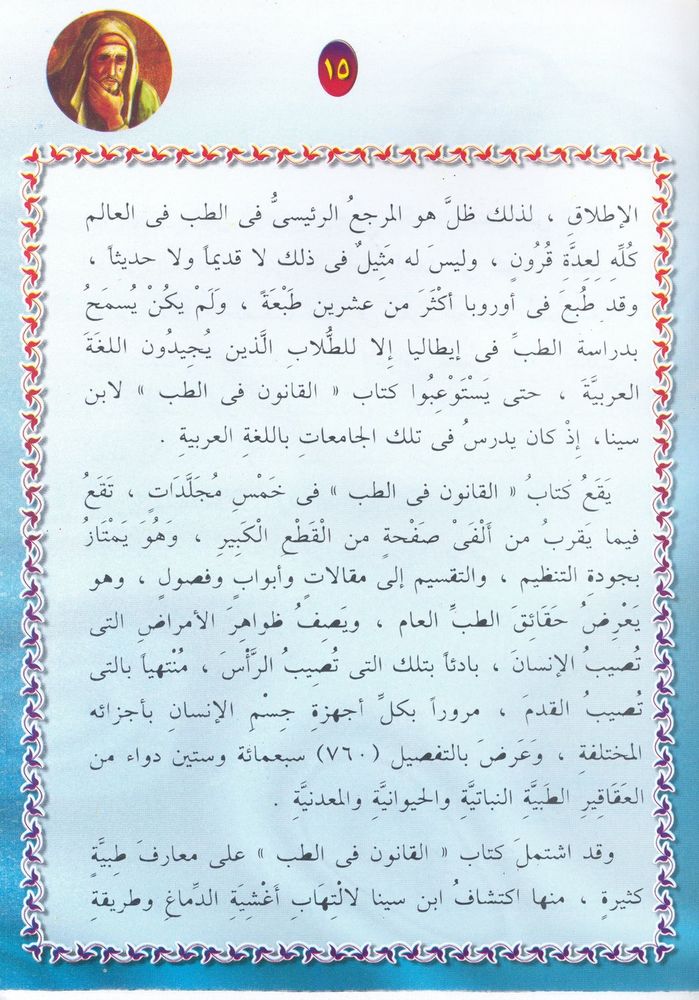 ١٥
الإطلاقِ ، لذلك ظلَّ هو المرجعُ الرئيسىُّ فى الطب فى العالم
كُلِّهِ لِعِدَّةِ قُرُونٍ ، وليسَ له مَثِيلٌ فى ذلك لا قديماً ولا حديثاً ،
وقد طُبعَ فى أوروبا أكْثَرَ من عشرين طَبْعَةً ، ولَمْ يكُنْ يُسمَحُ
بدراسة الطبِّ فى إيطاليا إلا للطُّلابِ الَّذين يُجِيدُون اللغةَ
العربيَّةَ ، حتى يَسْتَوْعِبُوا كتاب « القانون فى الطب » لابن
سينا، إذْ كان يدرسُ فى تلك الجامعاتِ باللغةِ العربيةِ .
يَقَعُ كتابُ « القانون فى الطب » فى خَمْسِ مُجلَّدَاتٍ ، تَقَعُ
فيما يقربُ من أَلْفَىْ صَفْحةٍ من الْقَطْعِ الْكَبِيرِ ، وَهُوَ يَمْتَازُ
بجودةِ التنظيم ، والتقسيم إلى مقالاتٍ وأبوابٍ وفصولٍ ، وهو
يَعْرِضُ حقائِقَ الطبِّ العام ، ويَصِفُ ظواهِرَ الأمراضِ التى
تُصيبُ الإنسانَ ، بادئاً بتلك التى تُصِيبُ الرَّأْسَ ، مُنْتهياً بالتى
تُصيبُ القدمَ ، مروراً بكلِّ أجهزةِ جِسْمِ الإنسانِ بأجزائه
المختلفةِ ، وَعَرضَ بالتفصيل (٧٦٠) سبعمائة وستين دواء من
العَقَاقِيرِ الطبيَّةِ النباتيَّةِ والحيوانيَّةِ والمعدنيَّةِ .
وقد اشتملَ كتاب « القانون فى الطب » على معارفَ طِبيَّةٍ
كثيرةٍ ، منها اكتشافُ ابن سينا لالْتِهَابِ أغْشيَةِ الدِّماغِ وطريقةِ